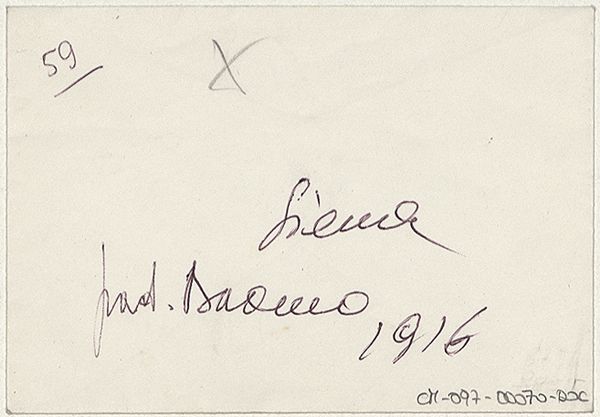 59
X
Siena
pad. Duomo
1916
CM-097-00070-DOC